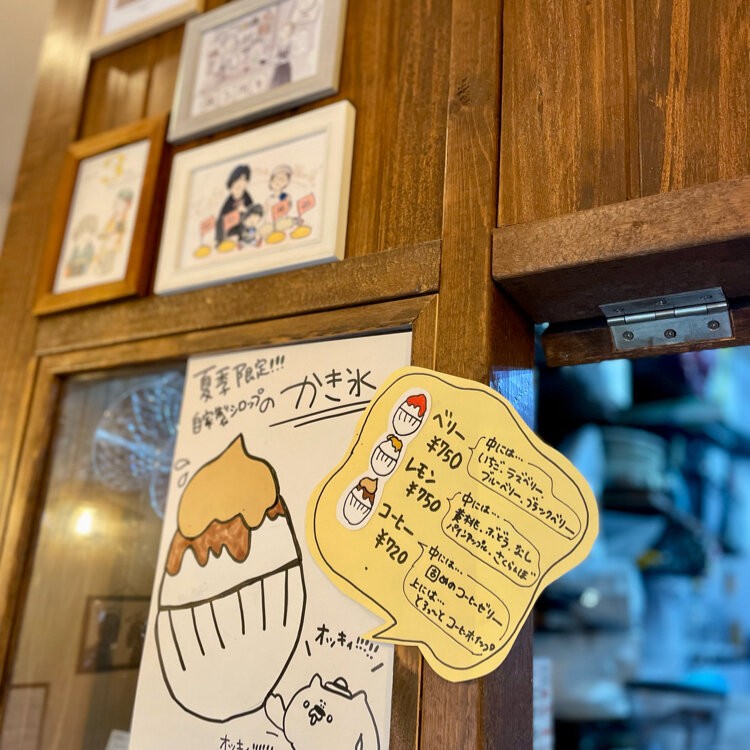 夏季限定!!!
自家製シロップの かき氷
ベリー
¥750
中には…
いちご ラズベリー
ブルーベリー、ブラックベリー
レモン
¥750
中には…
黄桃、ぶどう、なし
パインアップル、さくらんぼ
コーヒー
¥720
中には…
固めのコーヒーゼリー
上には…
とろ〜と コーヒーホイップ
オッキィ!!!!!
オッキィ!!!!!